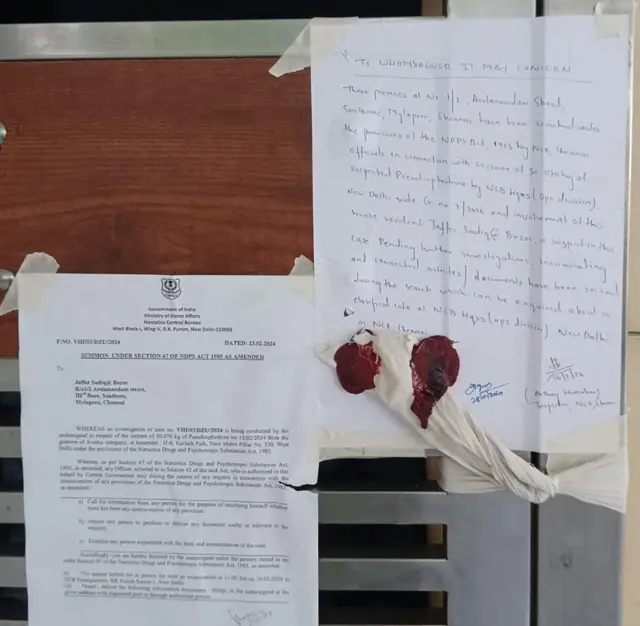 To WHOMSOEVER IT MAY CONCERN
These premises at No 1/2, Arulanandam Street,
Santhome, Mylapore, Chennai have been searched under
the provisions of the NDPS Act, 1985 by NCB Chennai
officials in connection with seizure of 50.070 kg of
suspected Pseudoephedrine by NCB Hqrs (ops division)
New Delhi vide Cr no 3/2024 and involvement of this
house resident Jaffer Sadiq @ Bezoz, a suspect in this
case. Pending further investigations. Incriminating
and connected articles/ documents have been seized
during the search which can be enquired about or
clarified into at NCB Hqrs (ops division) New Delhi
or NCB Chennai
Inspector, NCB, Chennai
Government of India
Ministry of Home Affairs
Narcotics Control Bureau
West Block-1, Wing-V, R.K. Puram, New Delhi-110066
F.NO. VIII/03/DZU/2024 DATED: 23.02.2024
SUMMON UNDER SECTION 67 OF NDPS ACT 1985 AS AMENDED
To
Jaffar Sadiq@ Bezoz
Arulanandam street,
IIIrd floor, Santhom,
Mylapore, Chennai
WHEREAS an investigation of case no. VIII/03/DZU/2024 is being conducted by the
undersigned in respect of the seizure of 50.070 kg of Pseudoephedrine on 15/02/2024 from the
Kailash Park, Near Metro Pillar No. 330, West
Delhi under the provisions of the Narcotics Drugs and Psychotropic Substances Act, 1985.
Whereas, as per Section 67 of the Narcotics Drugs and Psychotropic Substances Act,
1985, as amended, any Officer, referred to in Section 42 of the said Act, who is authorized in this
behalf by Central Government may during the course of any enquiry in connection with the
contravention of any provisions of the Narcotics Drugs and Psychotropic Substances Act, 1985
as amended:
a) Call for information from any person for the purpose of satisfying himself whether
there has been any contravention of any provision.
b) require any person to produce or deliver any document useful or relevant to the
enquiry.
c) Examine any person acquainted with the facts and circumstances of the case.
Accordingly, you are hereby directed by the undersigned under the powers vested in me
under Section 67 of the Narcotics Drugs and Psychotropic Substances Act, 1985, as amended.